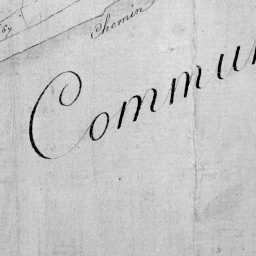 Chemin
Commu